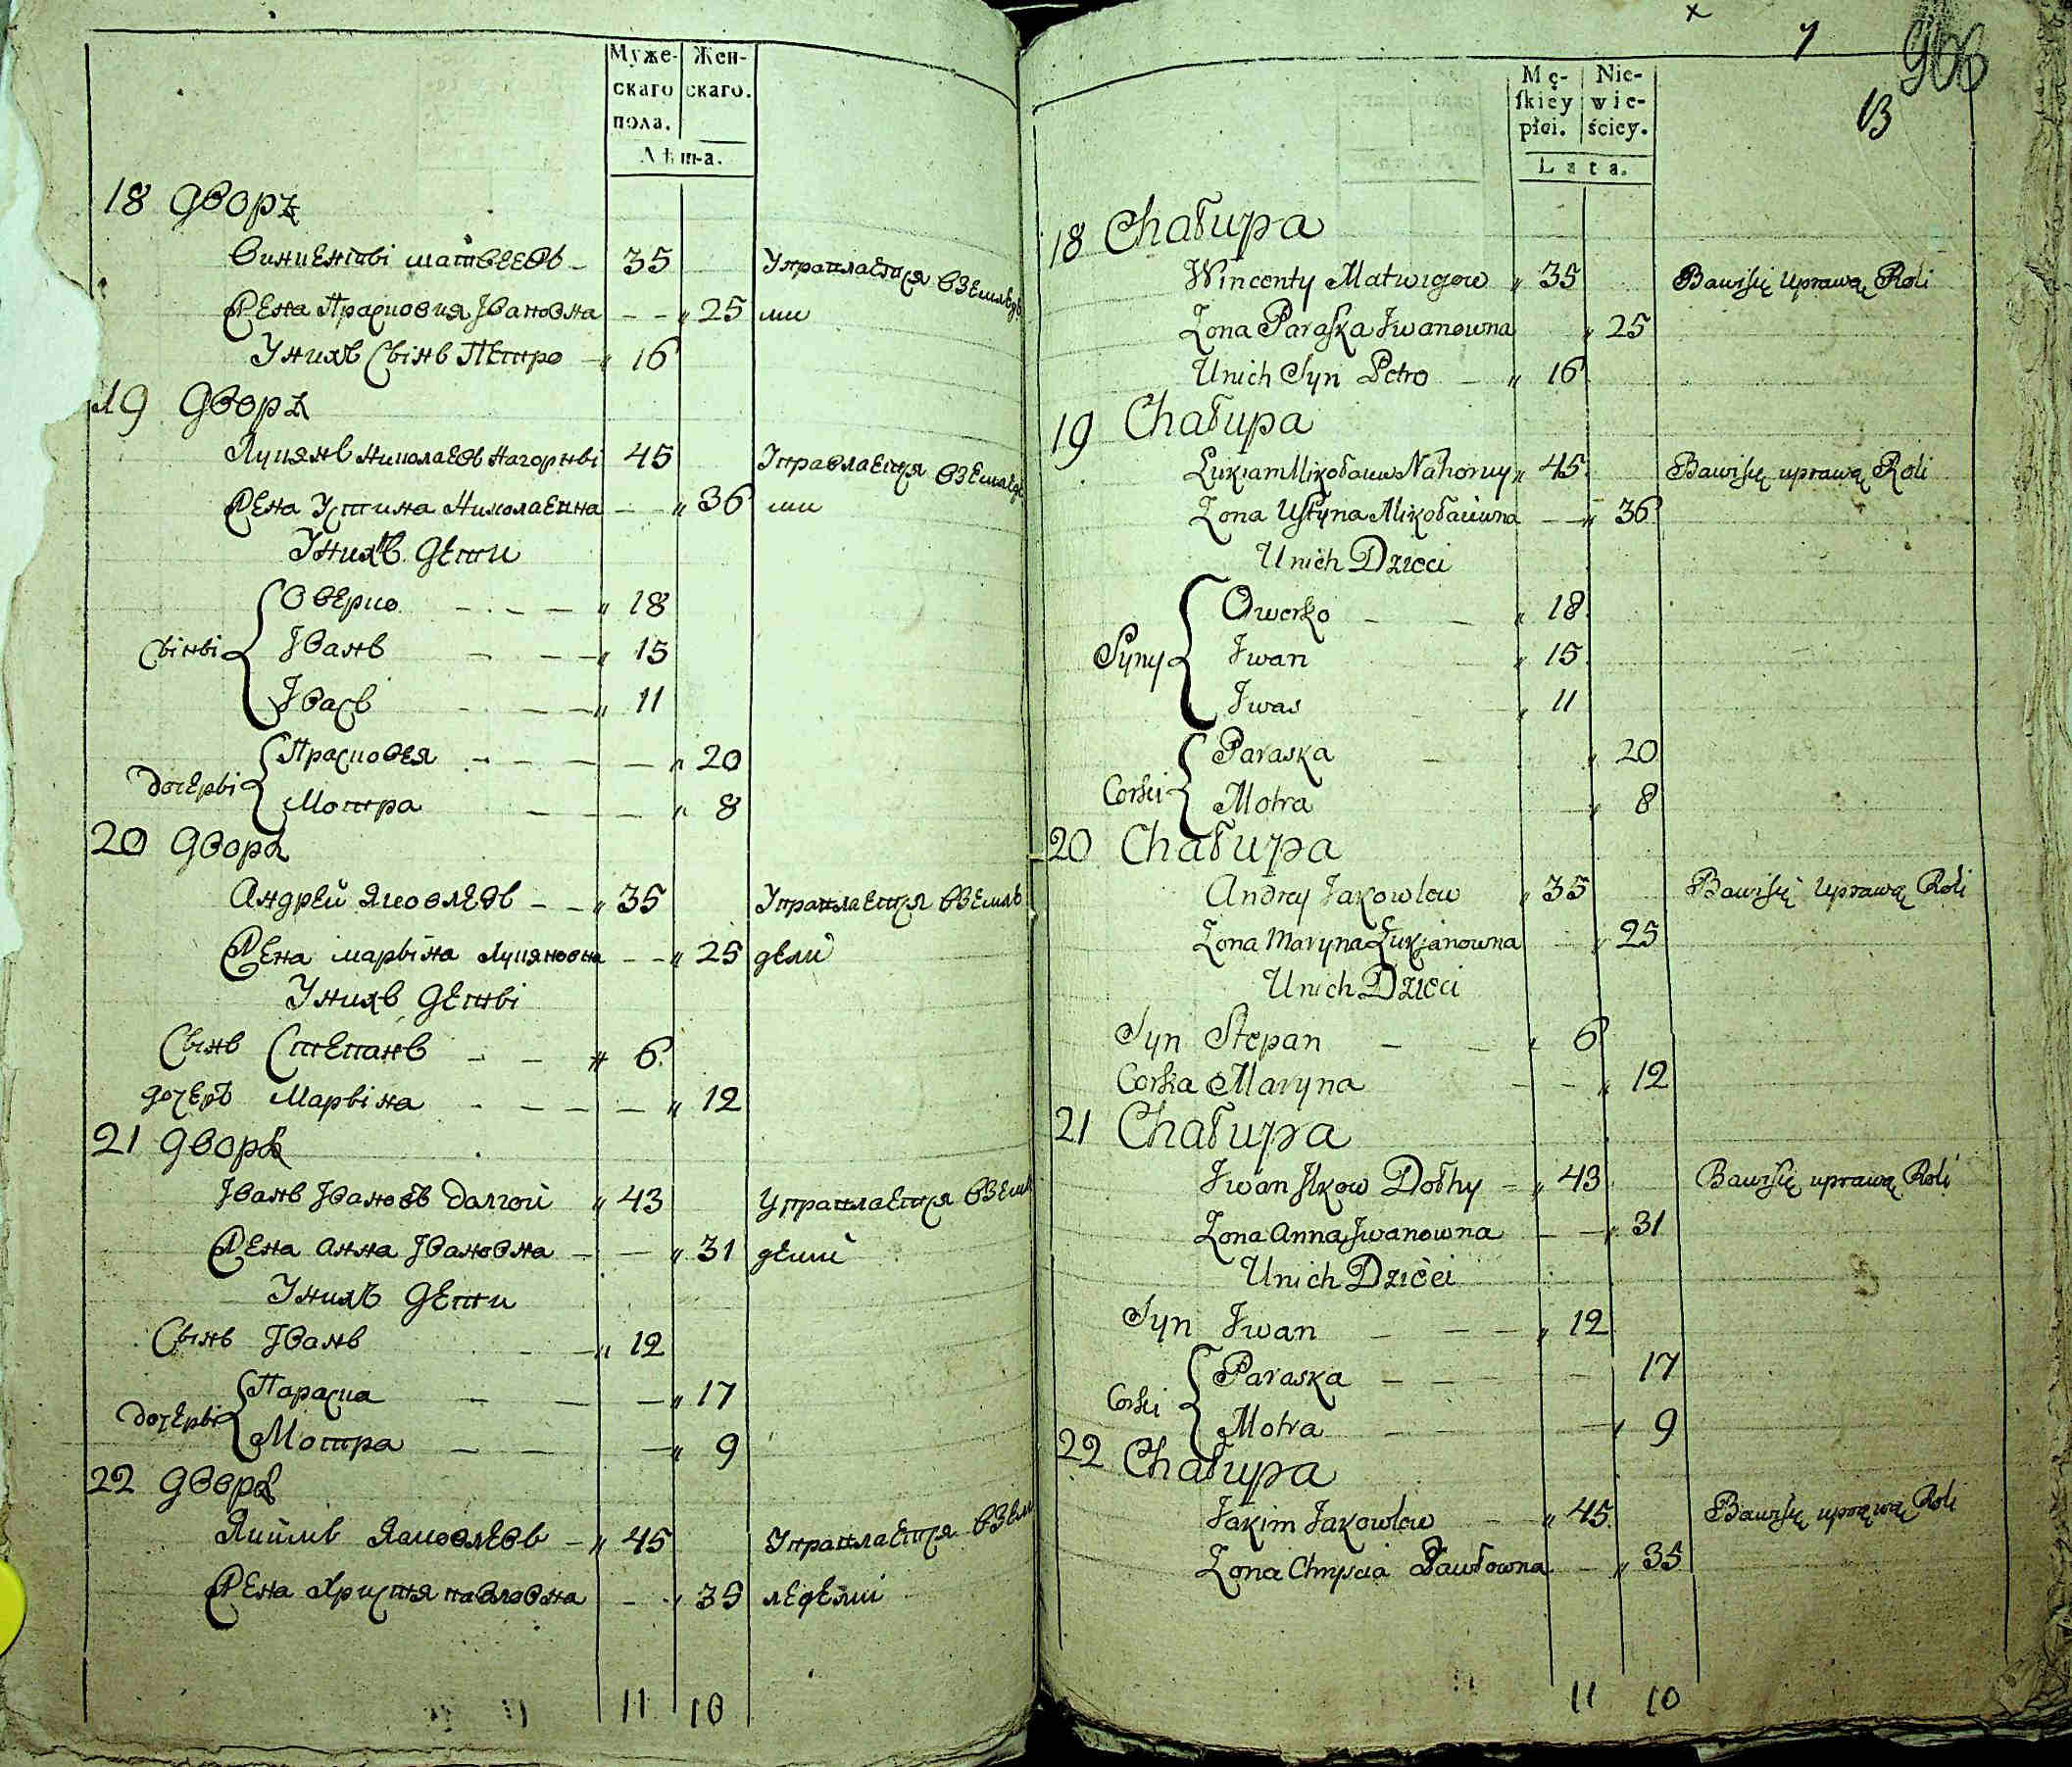 Муже- Жен-
скаго скаго.
пола.
Лѣта.
18 Дворъ
Винцентьі Матвеевъ 35 Упраплается вземледе
Жена Прасковия Івановна 25 ми
Унихъ Сьінъ Петро 16
19 Дворъ
Лукянъ Николаевъ Нагорньі 45 Управлается вземледе
Жена Устина Николаевна 36 ми
Унихъ Дети
Оверко 18
Сьіньі Іванъ 15
Івасъ 11
Прасковея 20
Дочерьі
Мотра 8
20 Дворъ
Андрей Яковлевъ 35 Упраплается вземлѣ
Жена Марьіна Лукяновна 25 дели
Унихъ Детьі
Сынъ Степанъ 6
Дочеръ Марьіна 12
21 Дворъ
Іванъ Івановъ Далгой 43 Упраплается взем
Жена Анна Івановна 31
Унихъ Дети
Сынъ Іванъ 12
Параска 17
Дочерьі
Мотра 9
22 Дворъ
Якимъ Яковлевъ 45 Упраплается взем
Жена Христя Павловна 35
11 10
x 7 906
13
Mę- Nie-
skiey wie-
płci. ściey.
Lata.
18 Chałupa
Wincenty Matwigow 35 Bawisię Uprawą Roli
Zona Paraska Jwanowna 25
Unich Syn Petro 16
19 Chałupa
Łukian Mikołaiow Nahorny 45 Bawisię uprawą Roli
Zona Ustyna Mikołaiowna 36
Unich Dzieci
Owerko 18
Syny Jwan 15
Jwas 11
Paraska 20
Corki
Motra 8
20 Chałupa
Andrey Jakowlew 35 Bawisię Uprawą Roli
Zona Maryna Łukjanowna 25
Unich Dzieci
Syn Stepan 6
Corka Maryna 12
21 Chałupa
Jwan Jlkow Dołhy 43 Bawisię uprawą Roli
Zona Anna Jwanowna 31
Unich Dzieci
Syn Jwan 12
Paraska 17
Corki
Motra 9
22 Chałupa
Jakim Jakowlew 45 Bawisię uprawą Roli
Zona Chryscia Pawłowna 35
11 10